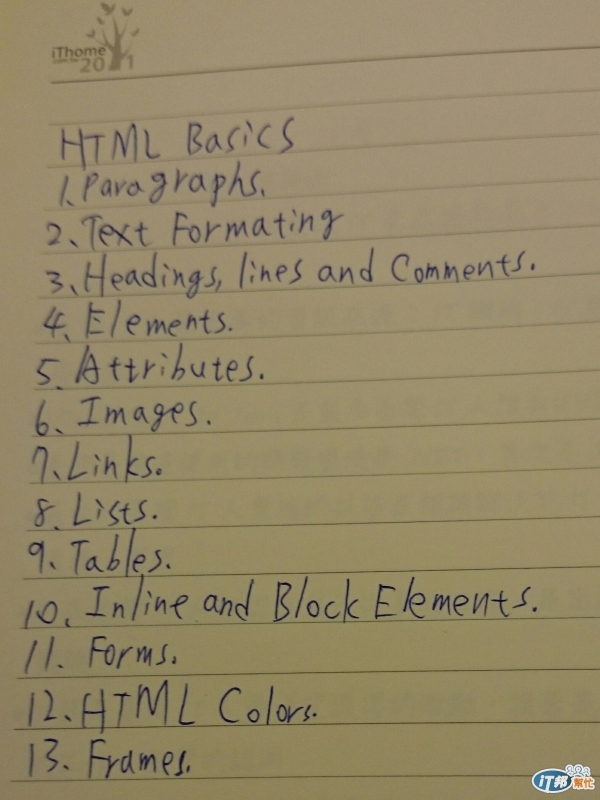 iThome
2011
HTML Basics
1. Paragraphs.
2. Text Formating
3. Headings, lines and Comments.
4. Elements.
5. Attributes.
6. Images.
7. Links.
8. Lists.
9. Tables.
10. Inline and Block Elements.
11. Forms.
12. HTML Colors.
13. Frames.
iT邦幫忙